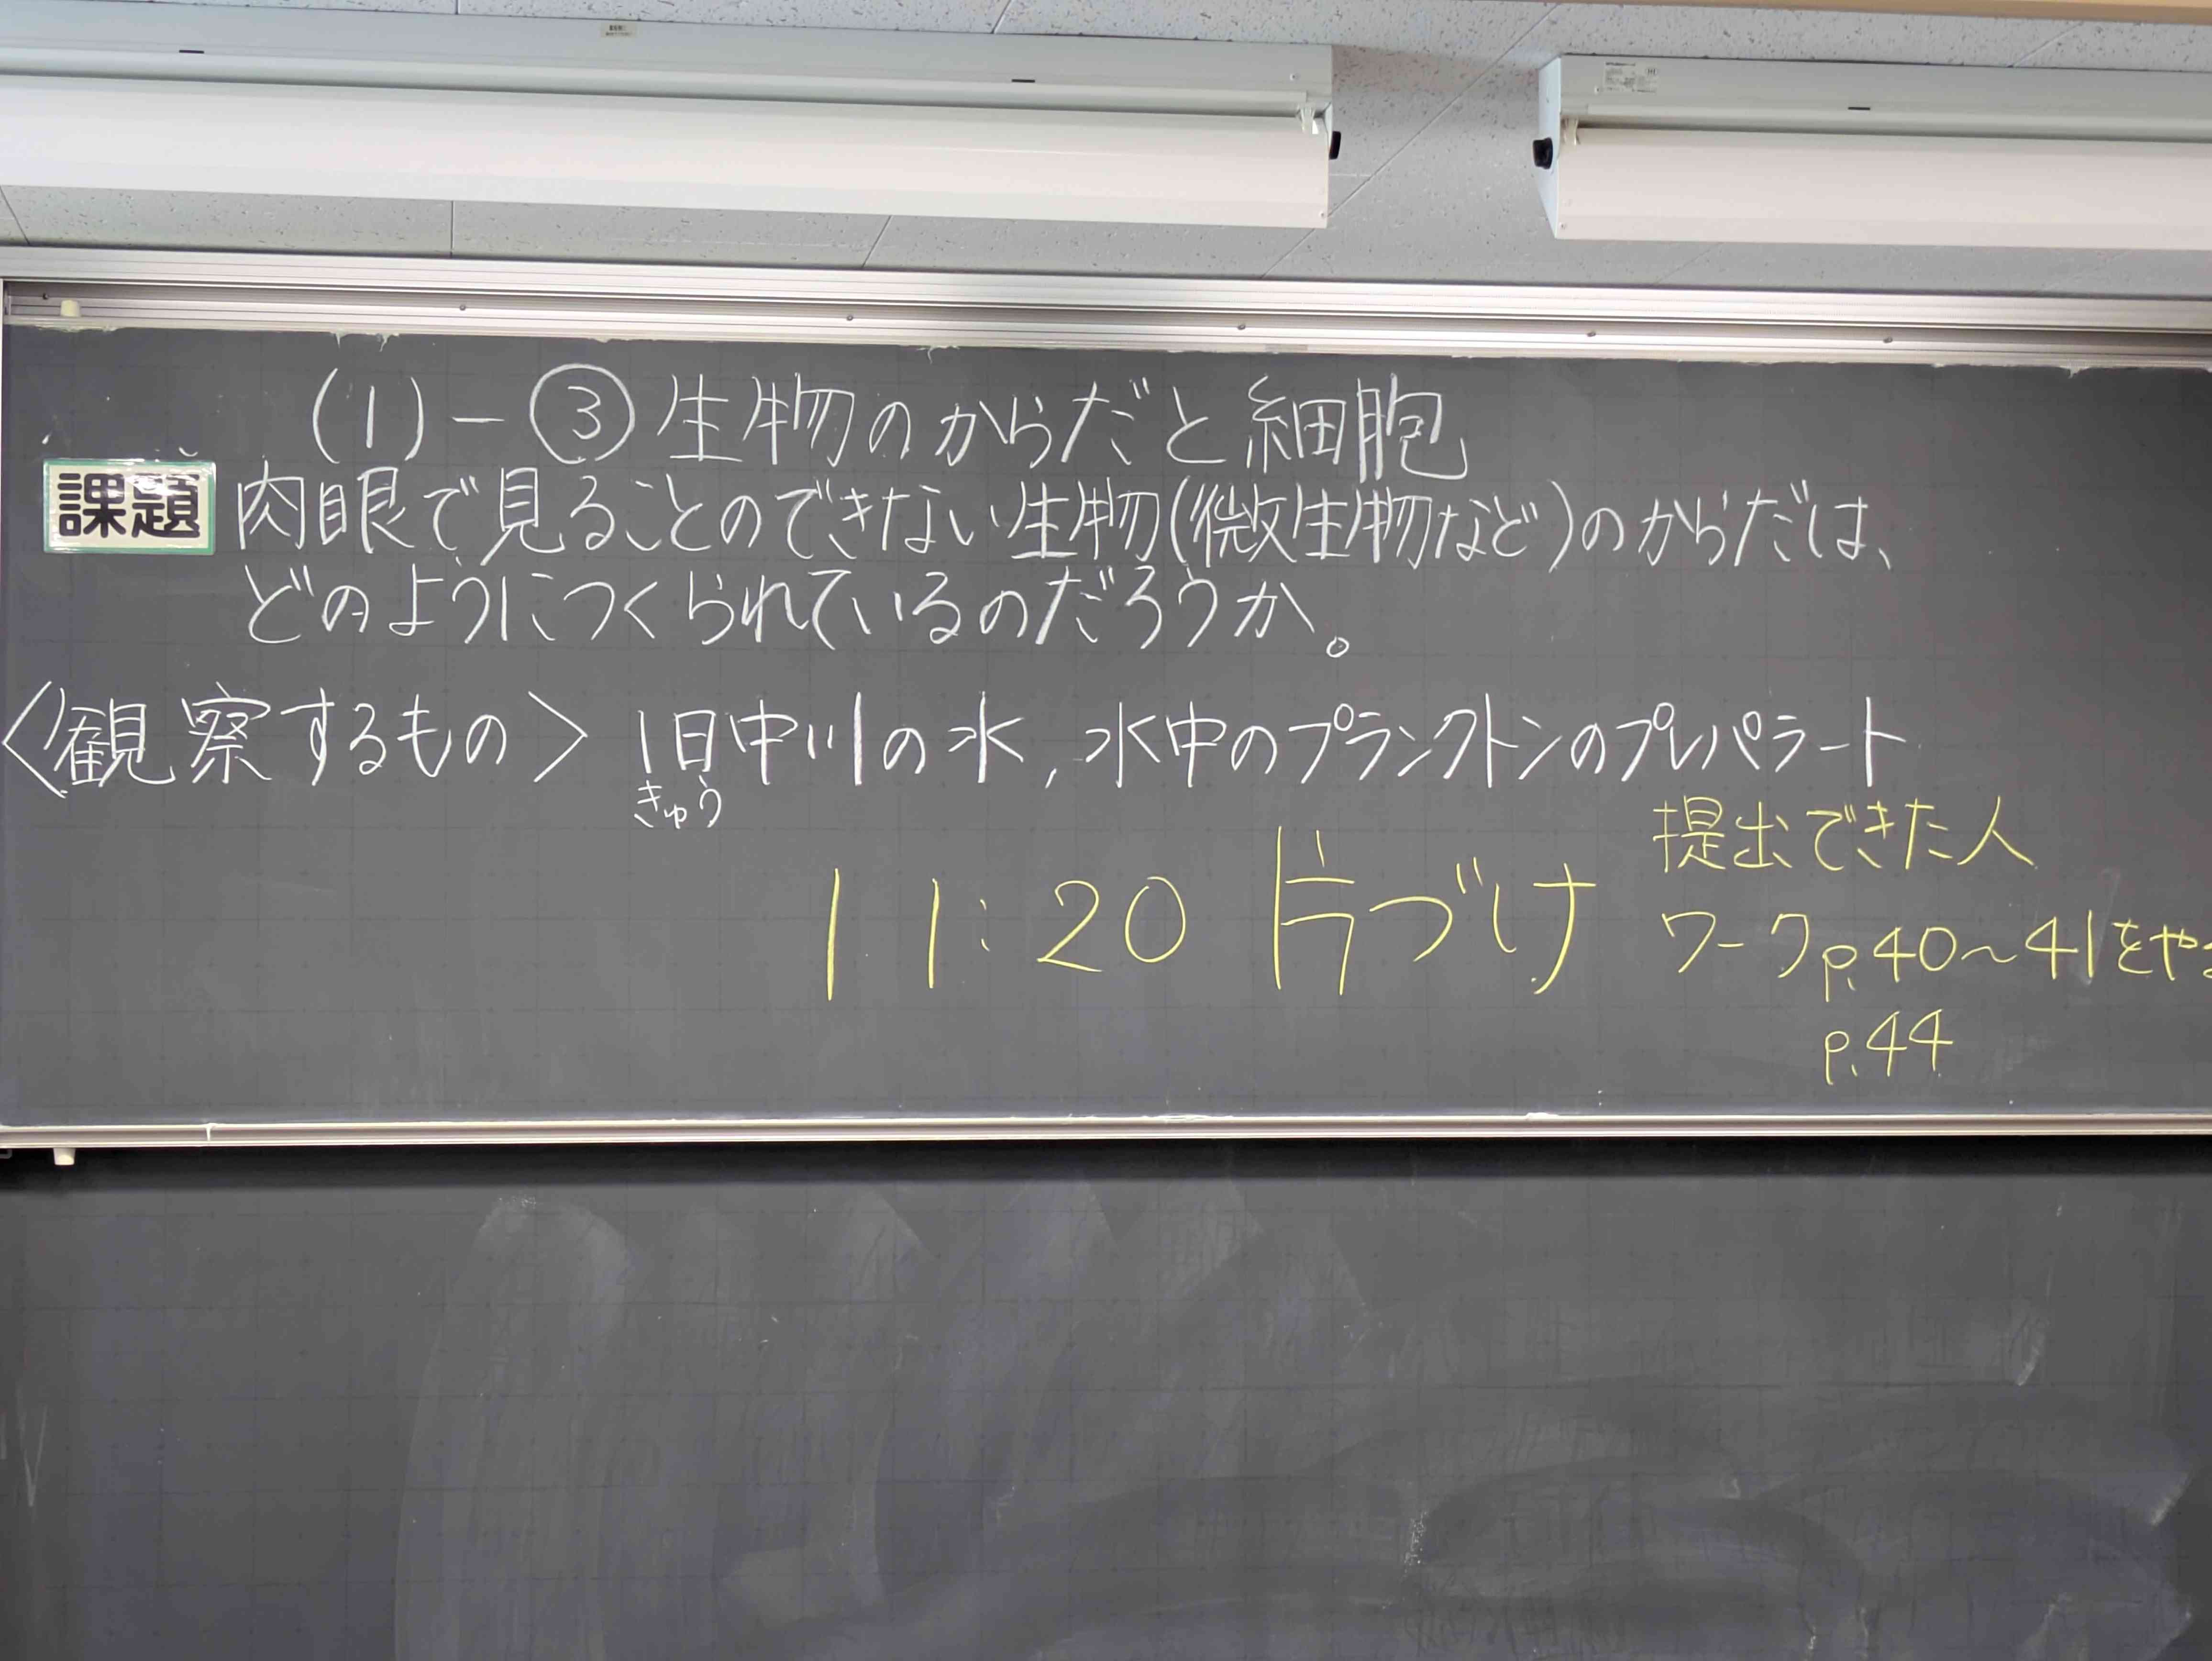 (1)-③ 生物のからだと細胞
課題 肉眼で見ることのできない生物(微生物など)のからだは、
どのようにつくられているのだろうか。
〈観察するもの〉 旧中川の水, 水中のプランクトンのプレパラート
きゅう
提出できた人
11:20 片づけ
ワークp.40〜41をや
p.44